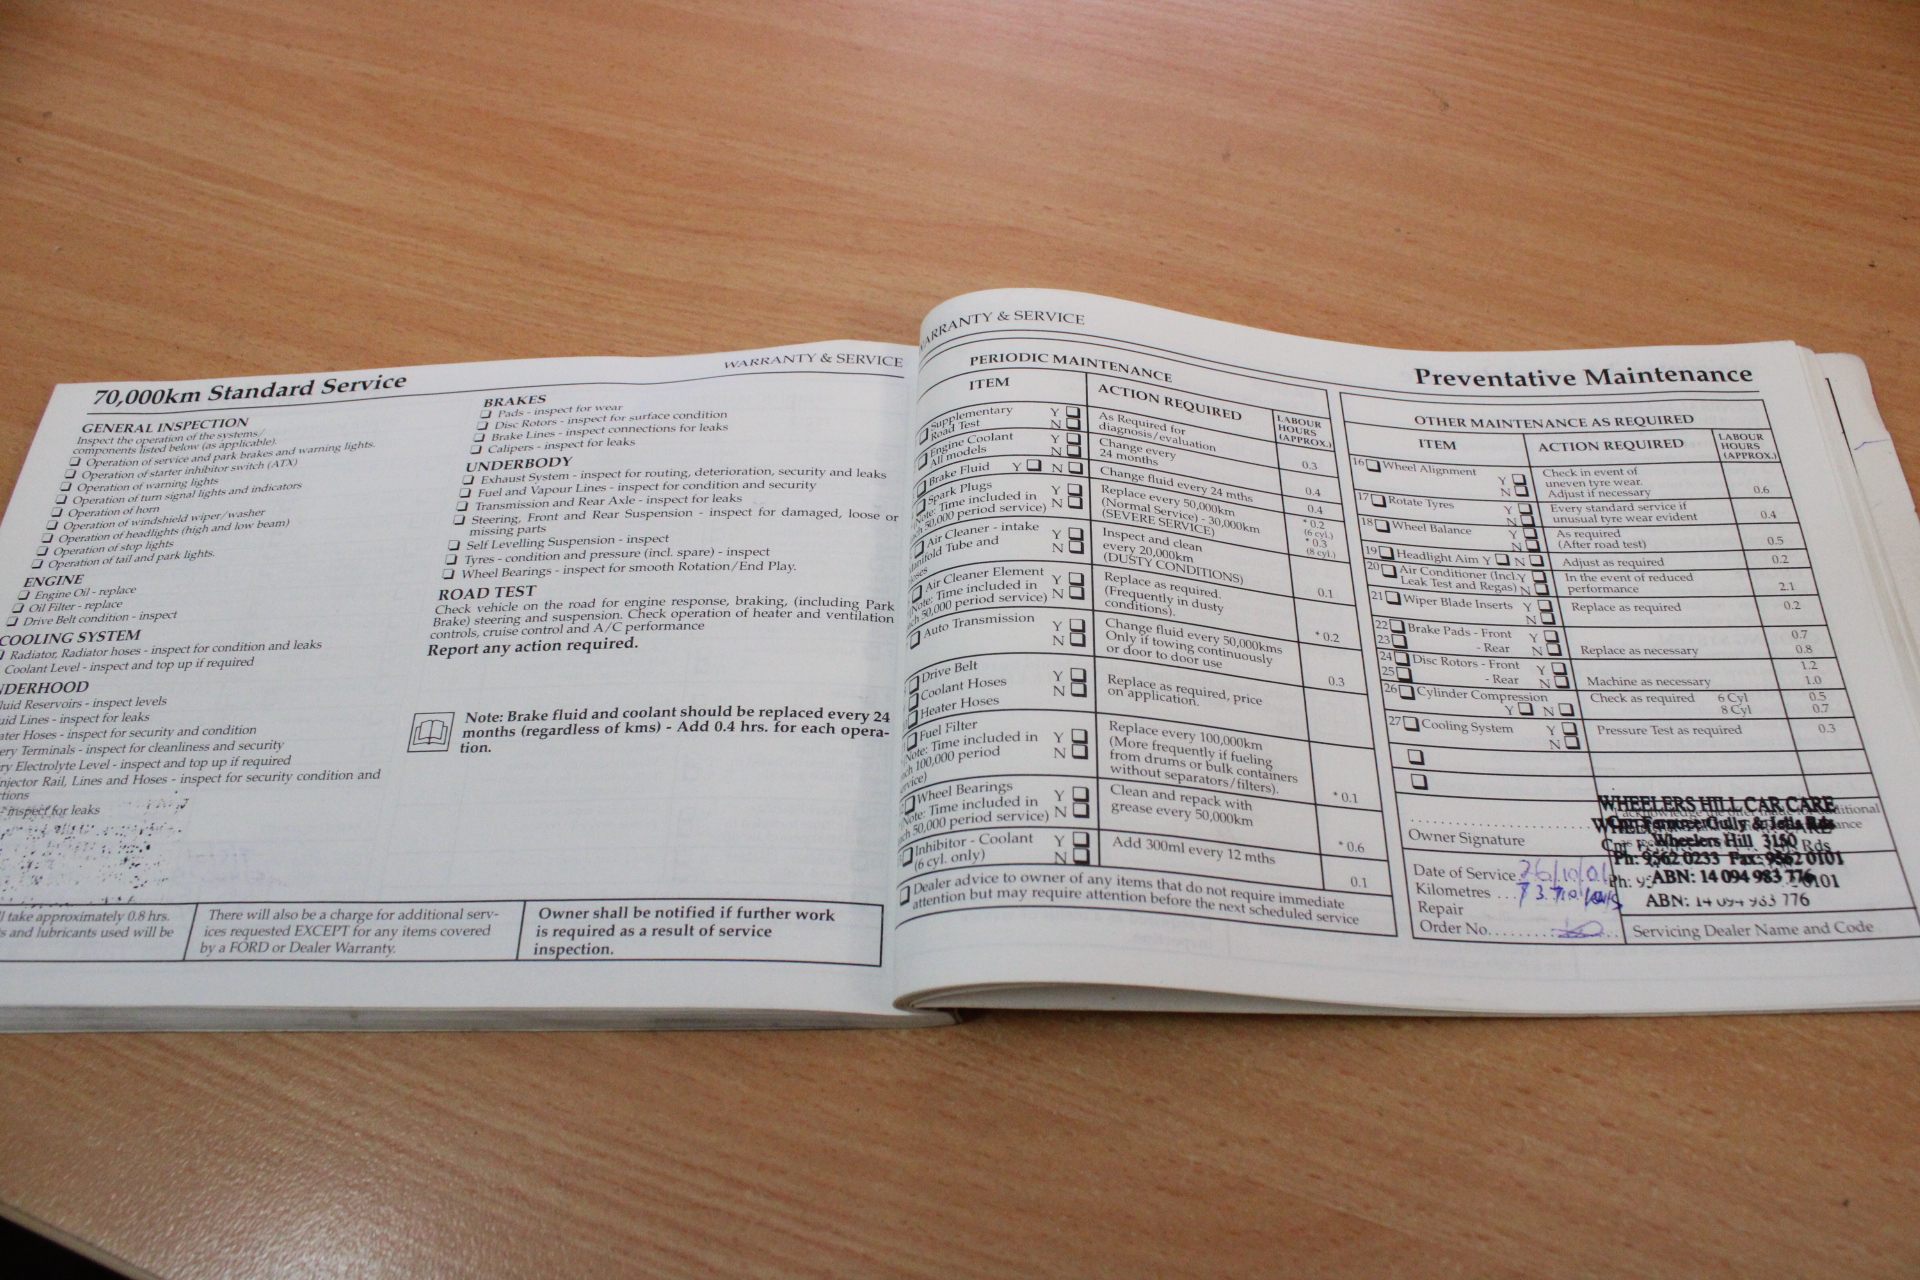 WARRANTY & SERVICE
70,000km Standard Service
GENERAL INSPECTION
Inspect the operation of the systems/
components listed below (as applicable).
Operation of service and park brakes and warning lights.
Operation of starter inhibitor switch (ATX)
Operation of warning lights
Operation of turn signal lights and indicators
Operation of horn
Operation of windshield wiper/washer
Operation of headlights (high and low beam)
Operation of stop lights
Operation of tail and park lights.
ENGINE
Engine Oil - replace
Oil Filter - replace
Drive Belt condition - inspect
COOLING SYSTEM
Radiator, Radiator hoses - inspect for condition and leaks
Coolant Level - inspect and top up if required
NDERHOOD
luid Reservoirs - inspect levels
uid Lines - inspect for leaks
ater Hoses - inspect for security and condition
ery Terminals - inspect for cleanliness and security
ry Electrolyte Level - inspect and top up if required
njector Rail, Lines and Hoses - inspect for security condition and
tions
- inspect for leaks
BRAKES
Pads - inspect for wear
Disc Rotors - inspect for surface condition
Brake Lines - inspect connections for leaks
Calipers - inspect for leaks
UNDERBODY
Exhaust System - inspect for routing, deterioration, security and leaks
Fuel and Vapour Lines - inspect for condition and security
Transmission and Rear Axle - inspect for leaks
Steering, Front and Rear Suspension - inspect for damaged, loose or
missing parts
Self Levelling Suspension - inspect
Tyres - condition and pressure (incl. spare) - inspect
Wheel Bearings - inspect for smooth Rotation/End Play.
ROAD TEST
Check vehicle on the road for engine response, braking, (including Park
Brake) steering and suspension. Check operation of heater and ventilation
controls, cruise control and A/C performance
Report any action required.
Note: Brake fluid and coolant should be replaced every 24
months (regardless of kms) - Add 0.4 hrs. for each opera-
tion.
l take approximately 0.8 hrs.
s and lubricants used will be
There will also be a charge for additional serv-
ices requested EXCEPT for any items covered
by a FORD or Dealer Warranty.
Owner shall be notified if further work
is required as a result of service
inspection.
WARRANTY & SERVICE
Preventative Maintenance
PERIODIC MAINTENANCE
ITEM ACTION REQUIRED LABOUR HOURS (APPROX.)
Supplementary Road Test Y N As Required for diagnosis/evaluation 0.3
Engine Coolant All models Y N Change every 24 months 0.4
Brake Fluid Y N Change fluid every 24 mths 0.4
Spark Plugs Y N Replace every 50,000km * 0.2
(Note: Time included in (Normal Service) - 30,000km (6 cyl.)
ch 50,000 period service) (SEVERE SERVICE) * 0.3 (8 cyl.)
Air Cleaner - intake Y Inspect and clean
anifold Tube and N every 20,000km
oses (DUSTY CONDITIONS) 0.1
Air Cleaner Element Y Replace as required.
(Note: Time included in N (Frequently in dusty
ch 50,000 period service) conditions). * 0.2
Auto Transmission Y Change fluid every 50,000kms
N Only if towing continuously
or door to door use 0.3
Drive Belt
Coolant Hoses Y Replace as required, price
Heater Hoses N on application.
Fuel Filter Replace every 100,000km
(Note: Time included in Y (More frequently if fueling
ch 100,000 period N from drums or bulk containers
service) without separators/filters). * 0.1
Wheel Bearings Y Clean and repack with
(Note: Time included in N grease every 50,000km
ch 50,000 period service) * 0.6
Inhibitor - Coolant Y Add 300ml every 12 mths
(6 cyl. only) N 0.1
Dealer advice to owner of any items that do not require immediate
attention but may require attention before the next scheduled service
OTHER MAINTENANCE AS REQUIRED
ITEM ACTION REQUIRED LABOUR HOURS (APPROX.)
16 Wheel Alignment Check in event of
Y uneven tyre wear.
N Adjust if necessary 0.6
17 Rotate Tyres Y Every standard service if
N unusual tyre wear evident 0.4
18 Wheel Balance Y As required
N (After road test) 0.5
19 Headlight Aim Y N Adjust as required 0.2
20 Air Conditioner (Incl. Y In the event of reduced
Leak Test and Regas) N performance 2.1
21 Wiper Blade Inserts Y N Replace as required 0.2
22 Brake Pads - Front Y 0.7
23 - Rear N Replace as necessary 0.8
24 Disc Rotors - Front Y 1.2
25 - Rear N Machine as necessary 1.0
26 Cylinder Compression Check as required 6 Cyl 0.5
Y N 8 Cyl 0.7
27 Cooling System Y N Pressure Test as required 0.3
WHEELERS HILL CAR CARE
Cnr Ferntree Gully & Jells Rds
Wheelers Hill 3150
Ph: 9562 0233 Fax: 9562 0101
ABN: 14 094 983 776
ABN: 14 094 983 776
Owner Signature
Date of Service 26/10/01
Kilometres
Repair
Order No.
Servicing Dealer Name and Code